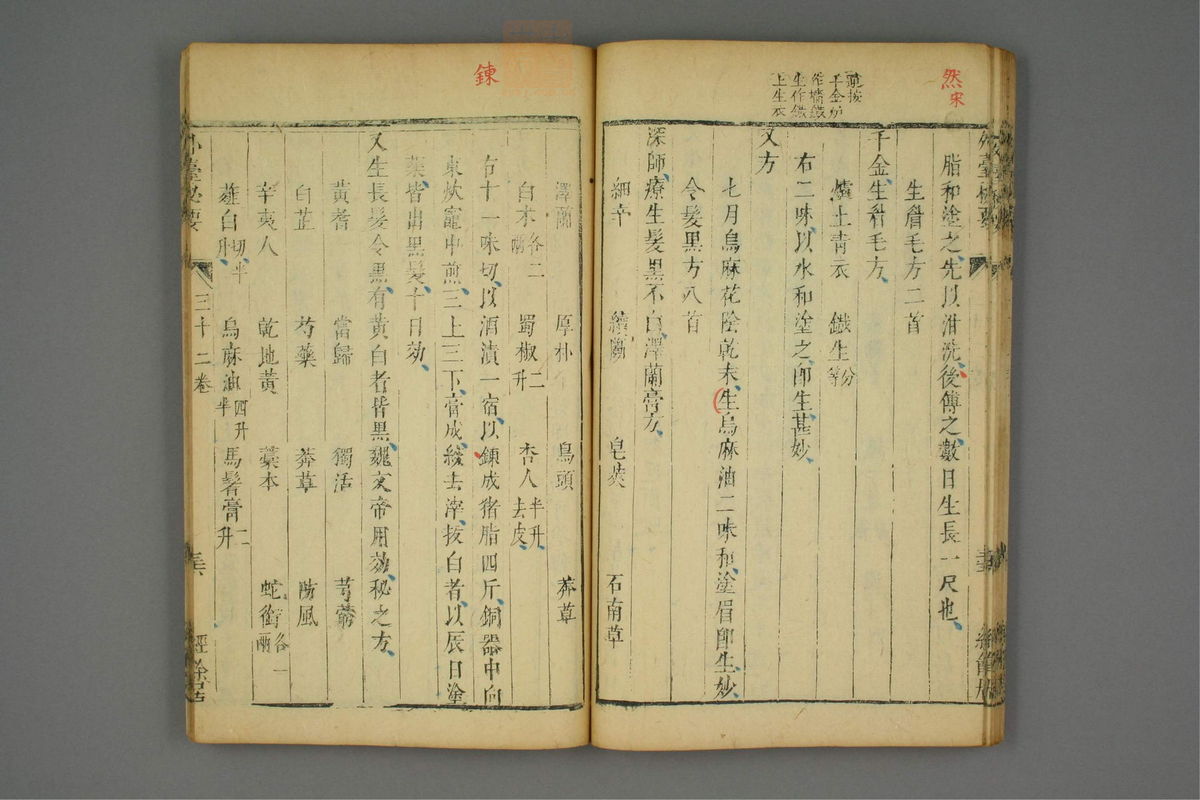 然
宋
競按
千金爐
作墻鐵
生作鐵
上生衣
脂和塗之先以泔洗後傅之數日生長一尺也
生眉毛方二首
千金生眉毛方
爐上青衣 鐵生等分
右二味以水和塗之卽生甚妙
又方
七月烏麻花陰乾末生烏麻油二味和塗眉卽生妙
令髮黑方八首
深師療生髮黑不白澤蘭膏方
細辛 續斷 皂莢 石南草
鍊
澤蘭 厚朴 烏頭 莽草
白朮各二兩 蜀椒二升 杏人半升去皮
右十一味切以酒漬一宿以鍊成豬脂四斤銅器中向
東炊竈中煎三上三下膏成綾去滓拔白者以辰日塗
藥皆出黑髮十日効
又生長髮令黑有黃白者皆黑魏文帝用効秘之方
黃耆 當歸 獨活 芎藭
白芷 芍藥 莽草 防風
辛夷人 乾地黃 藁本 蛇銜各一兩
薤白切半升 烏麻油四升半 馬鬐膏二升
外臺秘要 三十二卷 經餘居